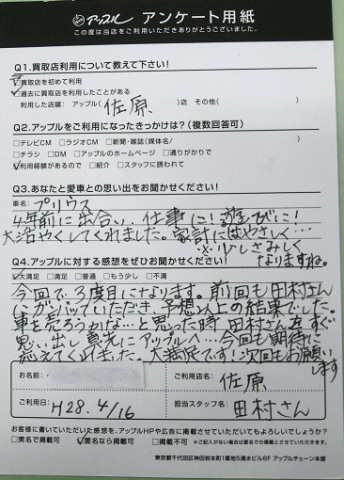 アップル アンケート用紙
この度は当店をご利用いただきありがとうございました。
Q1.買取店利用について教えて下さい!
買取店を初めて利用
過去に買取店を利用したことがある
利用した店舗: アップル( 佐原 )店 その他( )
Q2.アップルをご利用になったきっかけは?(複数回答可)
□テレビCM □ラジオCM □新聞・雑誌(媒体名/ )
□チラシ □DM □アップルのホームページ □通りがかりで
利用経験があるので □紹介 □スタッフに誘われて
Q3.あなたと愛車との思い出をお聞かせください!
車名: プリウス
4年前に出合い、仕事に!遊びに!
大活やくしてくれました。家計にはやさしく…
※少しさみしく
なりますね。
Q4.アップルに対する感想をぜひお聞かせください!
大満足 □満足 □普通 □もう少し □不満
今回で3度目になります。前回も田村さん
にがんばっていただき、予想以上の結果でした。
車を売ろうかな…と思った時 田村さんをすぐ
思い出し真先にアップルへ…今回も期待に
応えてくれました。大満足です!次回もお願い
します
お名前:
ご利用店名: 佐原
ご利用日: H28.4/16
担当スタッフ名: 田村さん
お客様に書いていただいた感想を、アップルHPや広告に掲載させていただいてもよろしいでしょうか?
□実名で掲載可 匿名なら掲載可 □掲載不可 ※ご記入がない場合は匿名での掲載とさせていただきます。
東京都千代田区神田岩本町1番地5清水ビル6F アップルチェーン本部